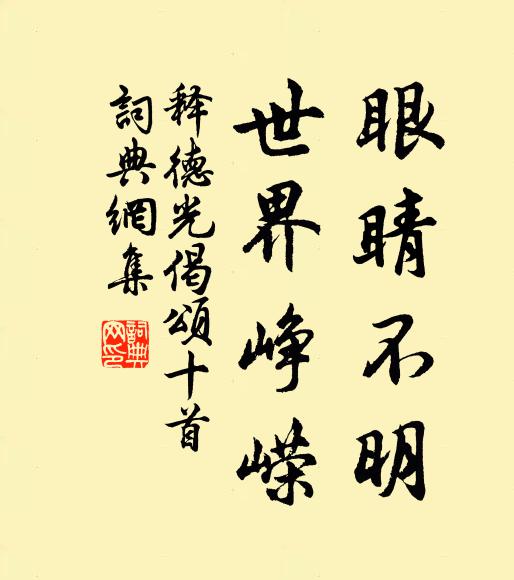 眼睛不明
世界峥嵘
释德光偈頌十首
詞典網集
詞典网印